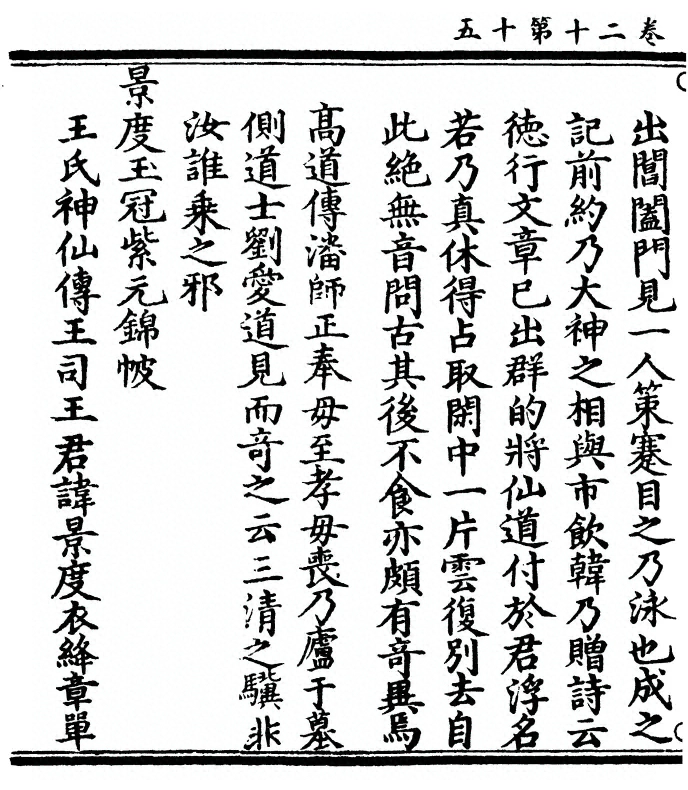 卷二十第十五
出閶闔門見一人策蹇目之乃泳也成之
記前約乃大神之相與市飲韓乃贈詩云
徳行文章已出群的將仙道付於君浮名
若乃真休得占取閑中一片雲復別去自
此絶無音問古其後不食亦頗有奇異焉
高道傳潘師正奉母至孝母喪乃廬于墓
側道士劉愛道見而奇之云三清之驥非
汝誰乘之邪
景度玉冠紫元錦帔
王氏神仙傳王司王君諱景度衣絳章單